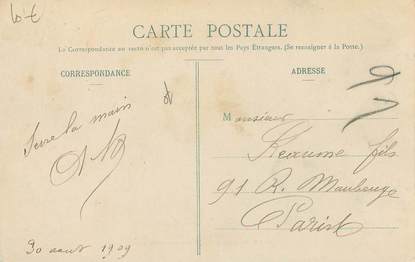 CARTE POSTALE
La Correspondance au recto n'est pas acceptée par tous les Pays Étrangers. (Se renseigner à la Poste.)
CORRESPONDANCE
ADRESSE
Serre la main
30 aout 1909
Monsieur
fils
91 R. Maubeuge
Paris